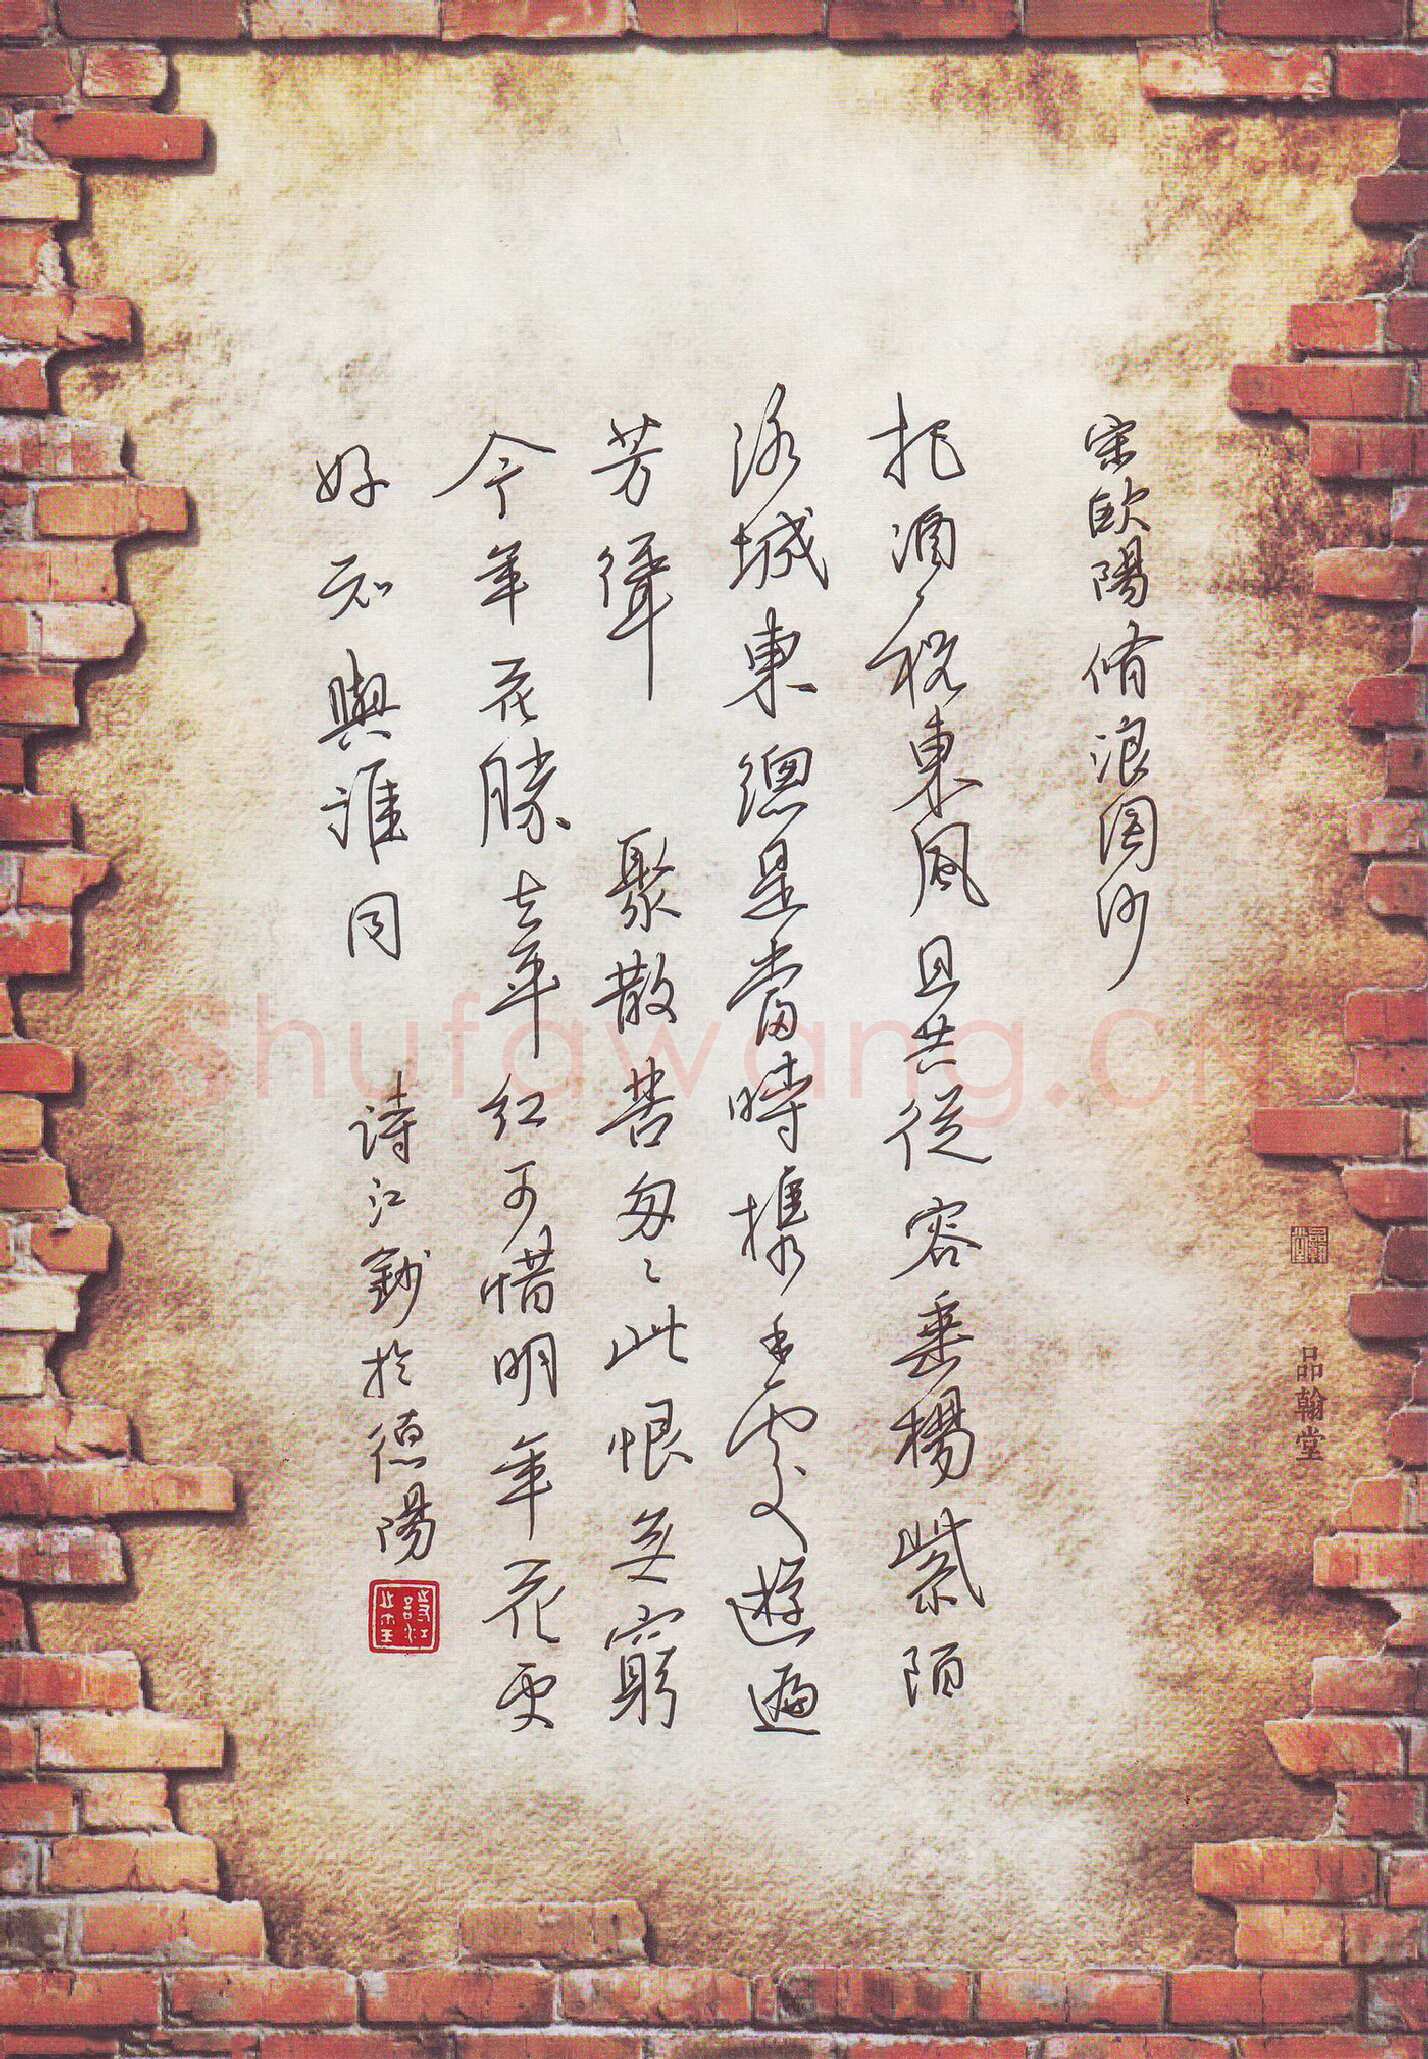 品翰堂
宋欧陽脩浪淘沙
把酒祝東風且共從容垂楊紫陌
洛城東總是當時攜手處遊遍
芳叢 聚散苦匆々此恨無窮
今年花勝去年紅可惜明年花更
好知與誰同 詩江鈔於德陽
shufawang.cn